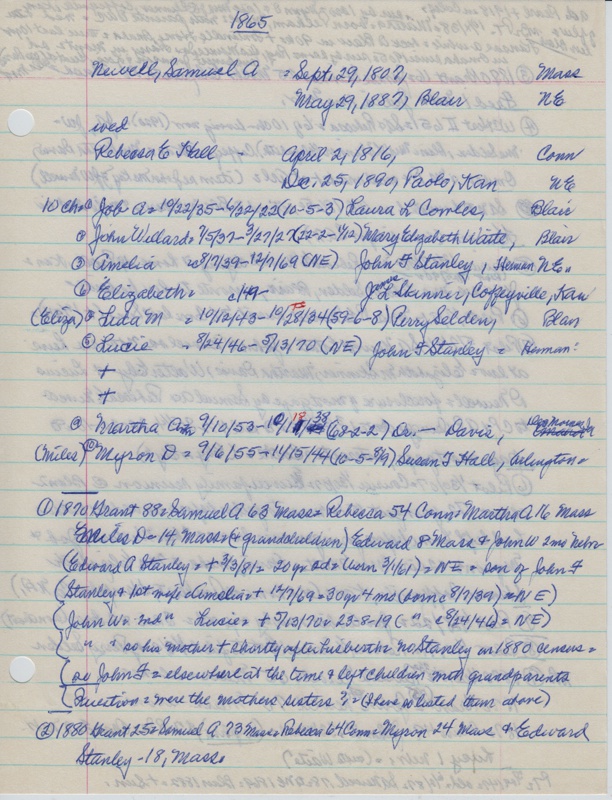 1865
Newell, Samuel A = Sept. 29, 1807, Mass
May 29, 1887, Blair NE
wed
Rebecca E Hall - April 2, 1816, Conn
Dec. 25, 1890, Paolo, Kan NE
10 ch = Job A = 10/22/35 - 6/22/22 (10-5-3) Laura L Combes, Blair
John Willard = 7/5/37 - 3/27/27 (22-2-1/12) Mary Elizabeth Waite, Blair
Amelia c 8/7/39 - 12/7/69 (NE) John F Stanley, Herman NE
Elizabeth = c/49 - James L Skinner, Coffeyville, Kan
(Eliza) Lida M = 10/12/43 - 10/28/34 (59-6-8) Perry Selden, Blair
Lucie = 8/24/46 - 5/13/70 (NE) John F Stanley = Herman
+
+
Martha A = 9/10/53 - 18 38 (68-2-2) Dr. - Davis,
(Miles) Myron D = 9/6/55 - 11/15/44 (10-5-8/9) Susan T Hall, Arlington =
① 1870 Grant 88 = Samuel A 63 Mass = Rebecca 54 Conn = Martha A 16 Mass
Miles D = 14, Mass = (+ grandchildren) Edward 8 Mass & John W 2 mo Nebr
(Edward A Stanley = + 3/3/81 = 20 yr old = (born 3/1/61) = NE = son of John F
(Stanley & 1st wife = Amelia = + 12/7/69 = 30 yr 4 mo (born c 8/7/39) = NE)
(John W = 2nd " Lusie = + 5/13/70 = 23-8-19 ( " c 8/24/46) = NE)
" " so his mother + shortly after his birth = no Stanley on 1880 census =
so John F = elsewhere at the time & left children with grandparents
Question = were the mothers sisters ? = (I have so listed them above)
② 1880 Grant 25 = Samuel A 73 Mass = Rebecca 64 Conn = Myron 24 Mass & Edward
Stanley - 18, Mass =